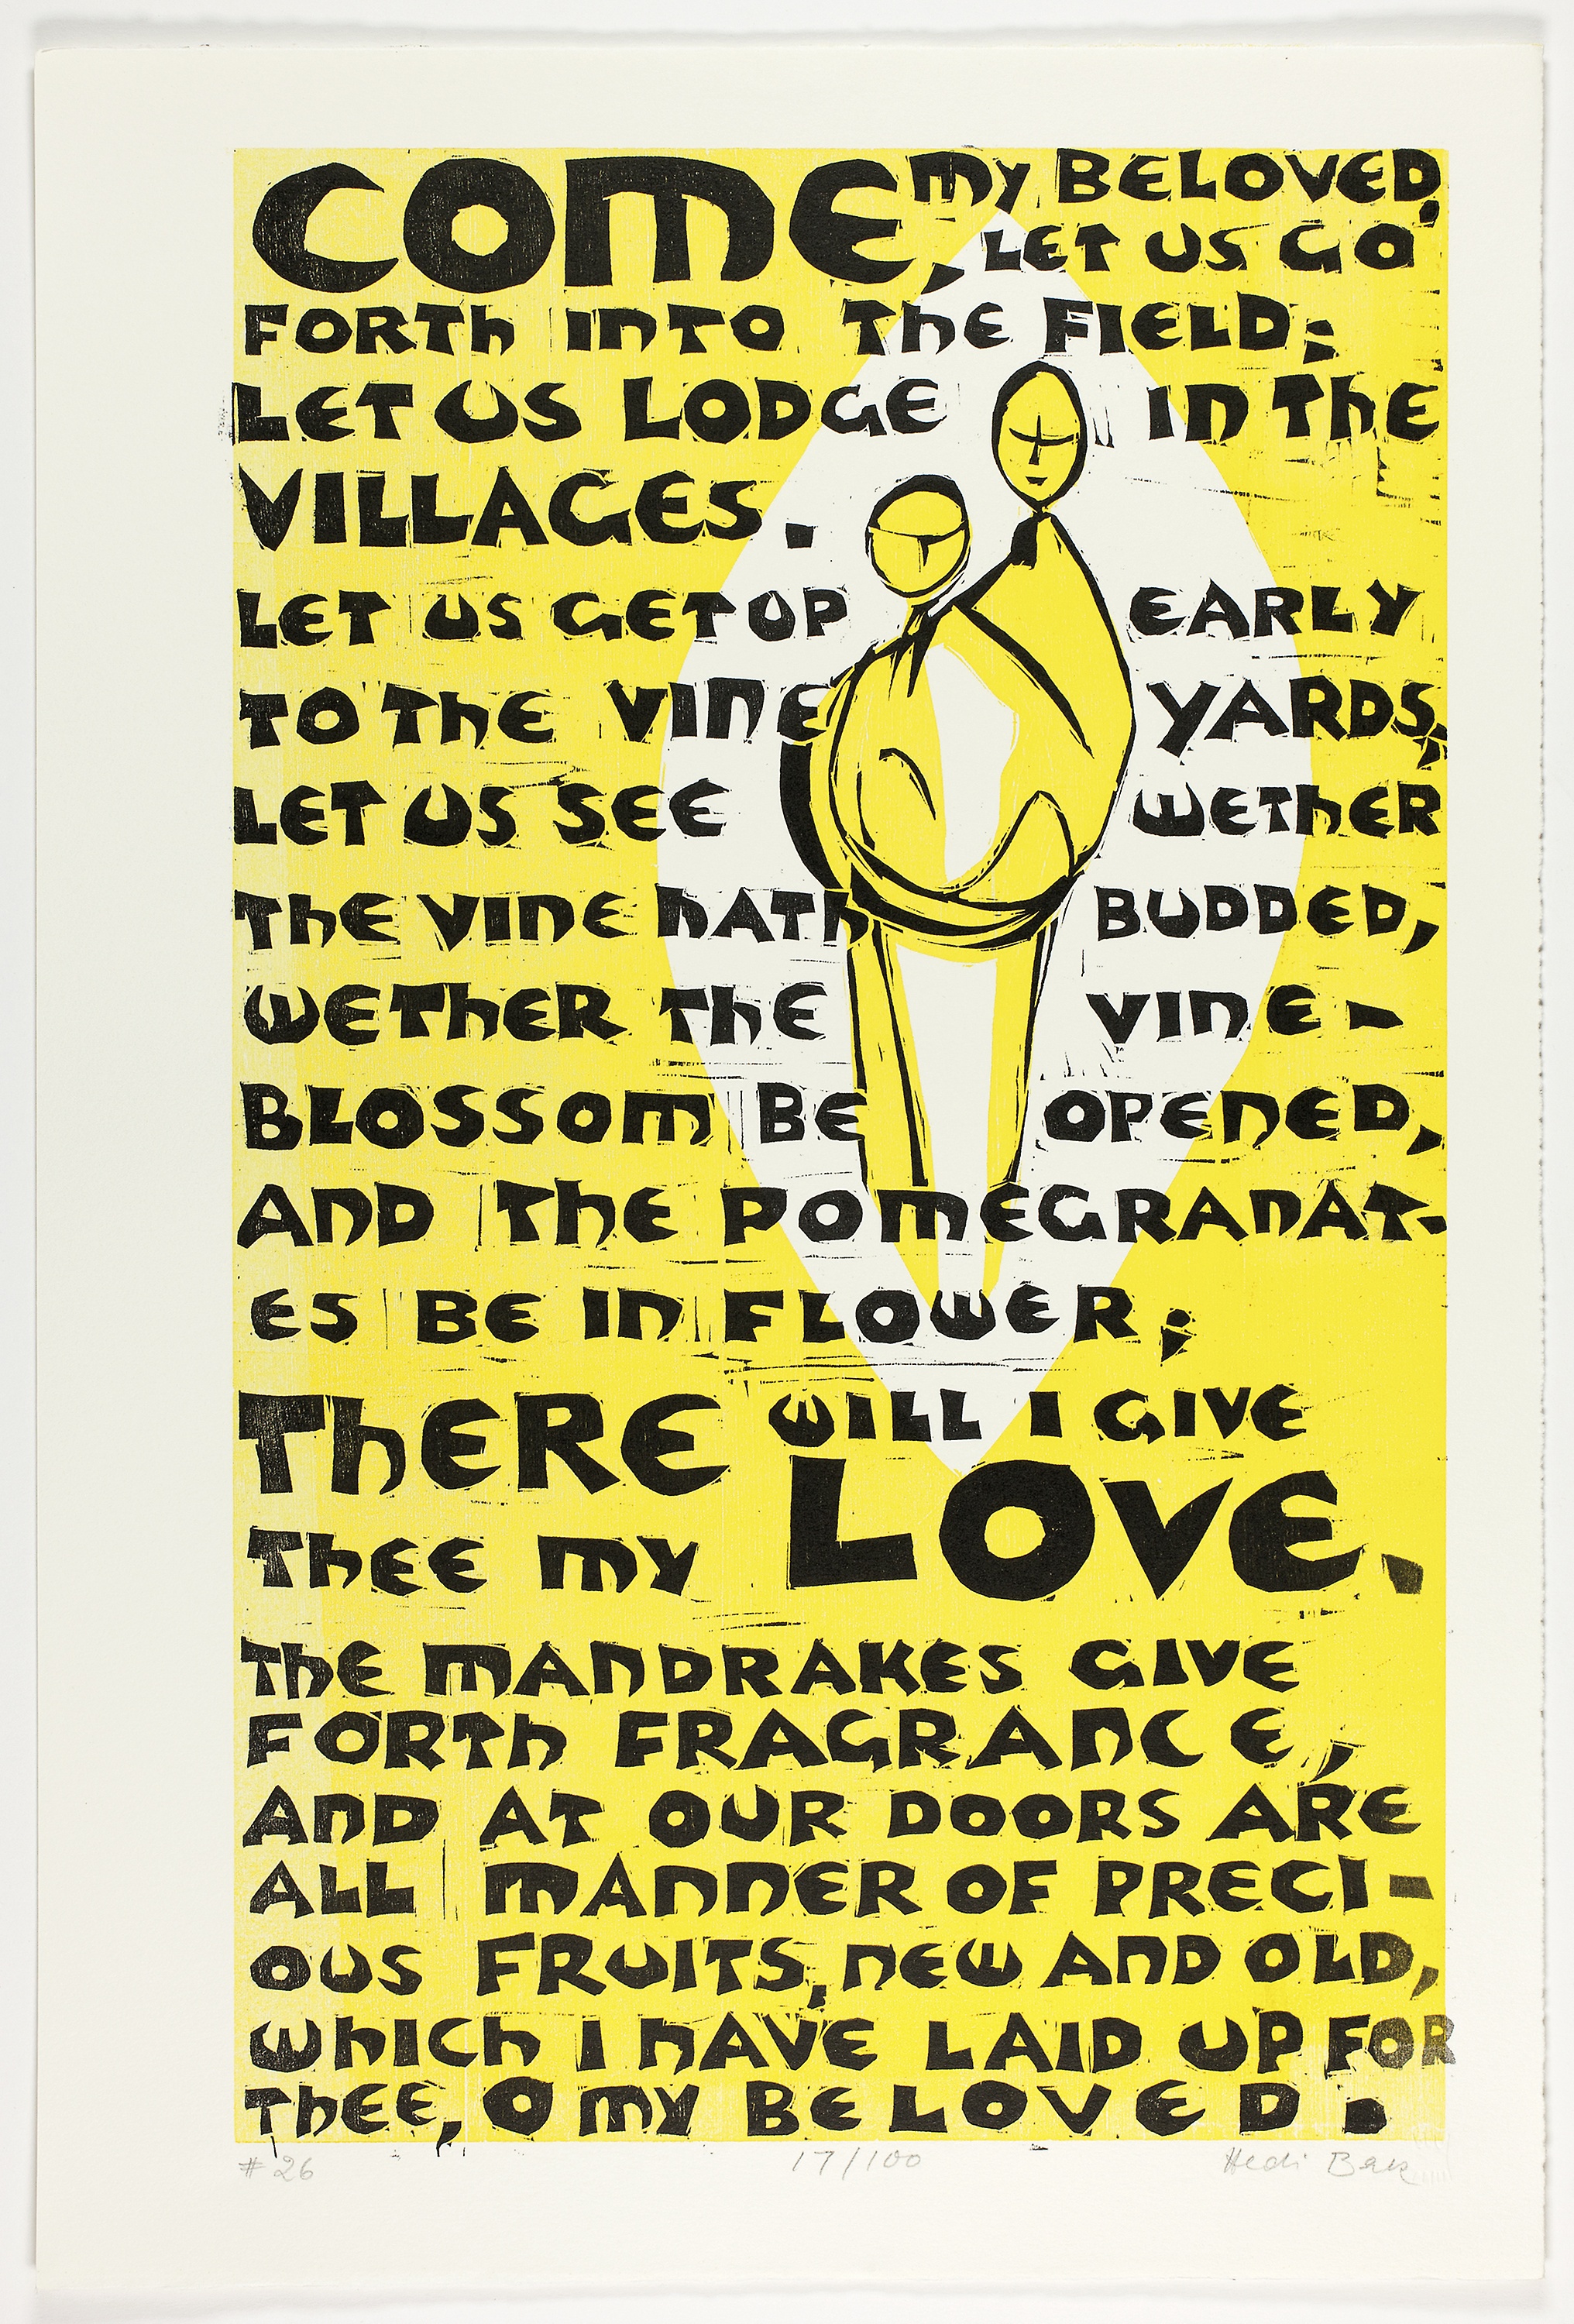 COME, MY BELOVED,
LET US GO
FORTH INTO THE FIELD;
LET US LODGE IN THE
VILLAGES.
LET US GET UP EARLY
TO THE VINE YARDS,
LET US SEE WETHER
THE VINE HATH BUDDED,
WETHER THE VINE-
BLOSSOM BE OPENED,
AND THE POMEGRANAT-
ES BE IN FLOWER;
THERE WILL I GIVE
THEE MY LOVE.
THE MANDRAKES GIVE
FORTH FRAGRANCE,
AND AT OUR DOORS ARE
ALL MANNER OF PRECI-
OUS FRUITS, NEW AND OLD,
WHICH I HAVE LAID UP FOR
THEE, O MY BELOVED.
#26 17/100 Hedi Bak